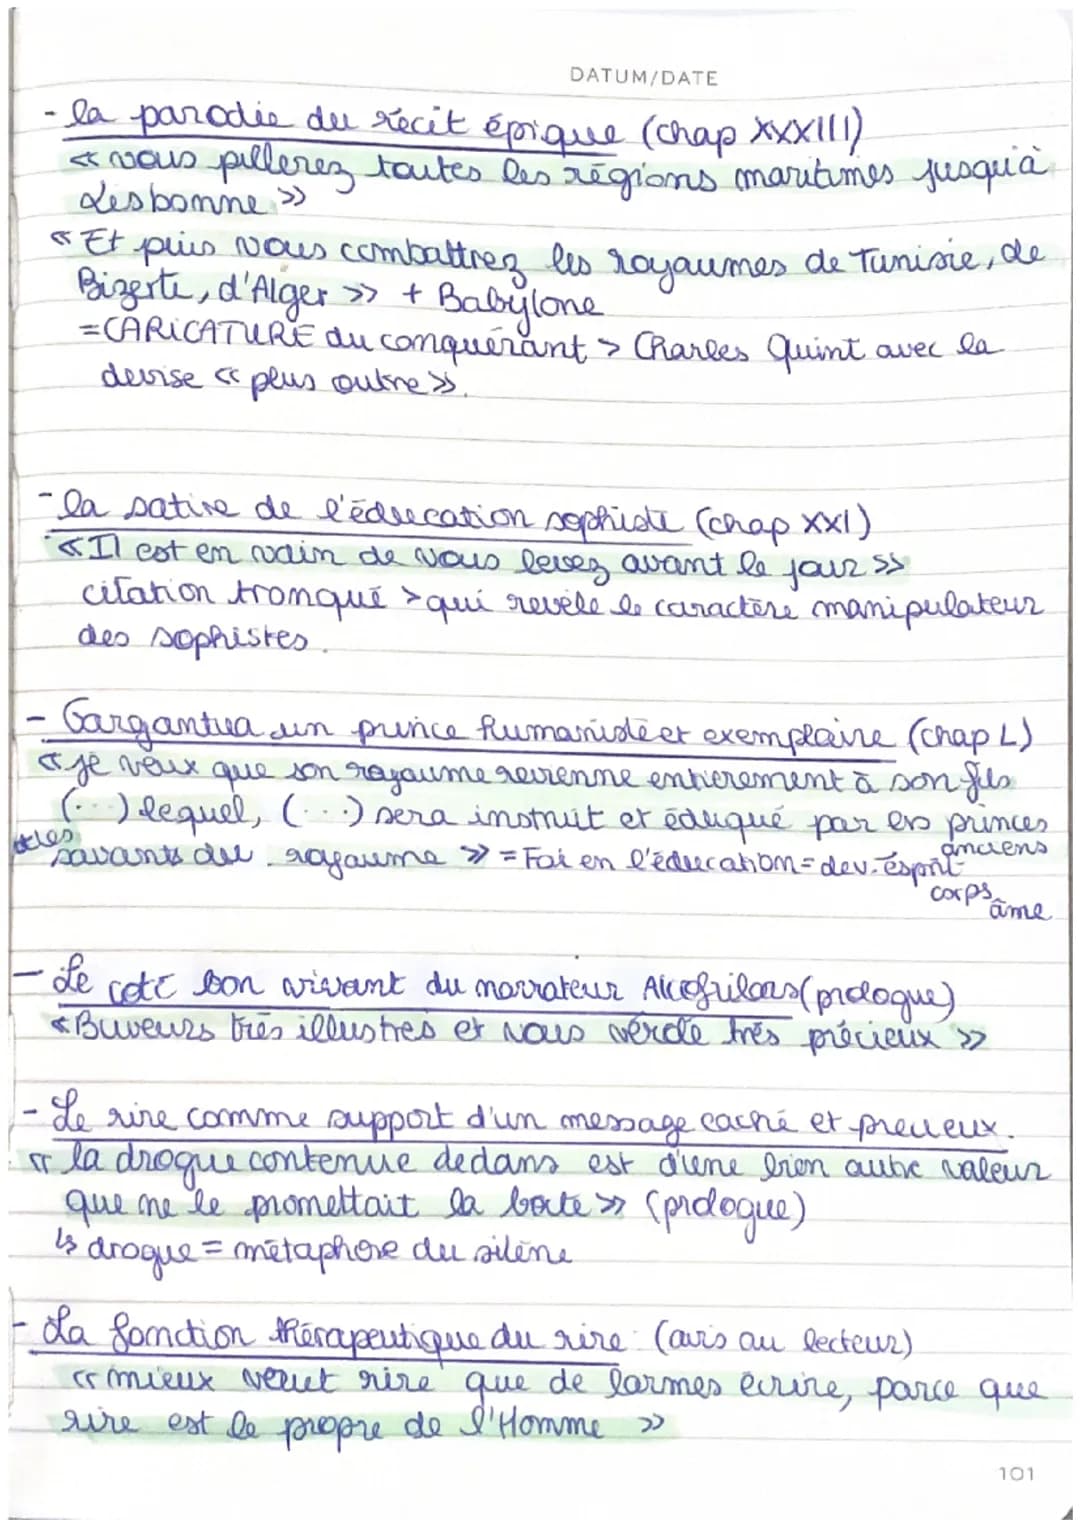 DATUM/DATE
- la parodie du récit épique (chap XXXIII)
« vous pillerez toutes les régions maritimes jusqu'à
Lisbonne »
« Et puis vous combattrez les royaumes de Tunisie, de
Bizerte, d'Alger » + Babylone
= CARICATURE du conquérant > Charles Quint avec la
devise « plus outre ».
- la satire de l'éducation sophiste (chap XXI)
« Il est en vain de vous levez avant le jour »
citation tronqué > qui revèle le caractère manipulateur
des sophistes.
- Gargantua un prince humaniste et exemplaire (chap L)
« je veux que son royaume revienne entierement à son fils
(...) lequel, (...) sera instruit et éduqué par les princes
anciens
et les
savants du royaume » = Foi en l'éducation = dev. ésprit
corps
âme
- Le coté bon vivant du narrateur Alcofribas (prologue)
« Buveurs très illustres et vous vérolé très précieux »
- Le rire comme support d'un message caché et precieux.
« la drogue contenue dedans est d'une bien autre valeur
que ne le promettait la boite » (prologue)
↳ drogue = métaphore du silène
- La fonction thérapeutique du rire (avis au lecteur)
« mieux veut rire que de larmes écrire, parce que
rire est le propre de l'Homme »
101